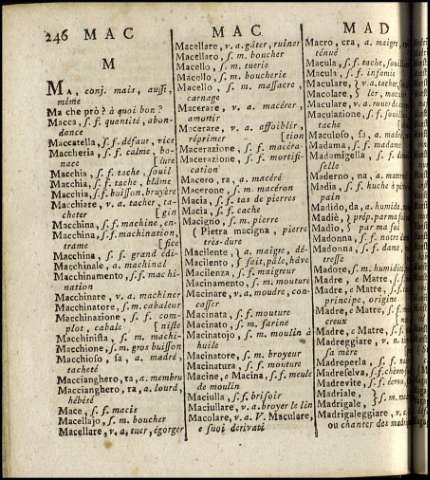 246 MAC
MAC
MAD
M
MA, conj. mais, aussi
même
Ma che prò? à quoi bon?
Macca, s. f. quantité, abon-
dance
Maccatella, s. f. défaur, vice
Maccheria, s. f. calme, bo-
nace [lure
Macchia, s. f. tache, souil
Macchia, s. f. tache, blâme
Macchia, s. f. buisson, bruyère
Macchiare, v. a. tacher, ta-
cheter [gin
Macchina, s. f. machine, en-
Macchina, s. f. machination,
trame [fice
Macchina, s. f. grand édi-
Macchinale, a. machinal
Macchinamento, s. f. machi-
nation
Macchinare, v. a. machiner
Macchinatore, s. m. cabaleur
Macchinazione, s. f. com-
plot, cabale [niste
Macchinista, s. m. machi-
Macchione, s. m. gros buisson
Macchioso, sa, a. madré,
tacheté
Maccianghero, ra, a. membru
Maccianghero, ra, a. lourd,
hébété
Mace, s. f. macis
Macellajo, s. m. boucher
Macellare, v. a. tuer, égorger
Macellare, v. a. gâter, ruiner
Macellaro, s. m. boucher
Macello, s. m. tuerie
Macello, s. m. boucherie
Macello, s. m. massacre,
carnage
Macerare, v. a. macérer,
amortir
Macerare, v. a. affoiblir,
réprimer [tion
Macerazione, s. f. macéra-
Macerazione, s. f. mortifi-
cation
Macero, ra, a. macéré
Macerone, s. m. macéron
Macia, s. f. tas de pierres
Macia, s. f. cache
Macigno, s. m. pierre
{ Pietra macigna, pierre
très-dure
Macilente, } a. maigre, dé-
Macilento, } fait, pâle, hâve
Macilenza, s. f. maigreur
Macinamento, s. m. mouture
Macinare, v. a. moudre, con-
casser
Macinata, s. f. mouture
Macinato, s. m. farine
Macinatojo, s. m. moulin à
huile
Macinatore, s. m. broyeur
Macinatura, s. f. mouture
Macine, e Macina, s. f. meule
de moulin
Maciulla, s. f. brisoir
Maciullare, v. a. broyer le lin
Macolare, v. a. V. Maculare,
e suoi derivati
Macro, cra, a. maigre,
ténué
Macula, s. f. tache,
Macula, s. f. infamie
Maculare, } v. a. tacher,
Macolare, } ler,
Maculare, v. a.
Maculazione, s. f.
tache
Maculoso, sa, a.
Madama, s. f. madame
Madamigella, s. f.
selle
Maderno, na, a.
Madia, s. f. huche à
pain
Madido, da, a. humide,
Madiè, } prép. par ma
Madiò, } par ma foi
Madonna, s. f. notre
Madonna, s. f. dame,
tresse
Madore, s. m. humidité
Madre, e Matre, s. f.
principe, origine
Madre, e Matre, s. f.
creux
Madre, e Matre, s. f.
Madreggiare, v.
sa mère
Madreperla, s. f.
Madreselva, s. f. chèvre
Madrevite, s. f.
Madriale, }
Madrigale, } s. m.
Madrigaleggiare, v.
ou chanter des